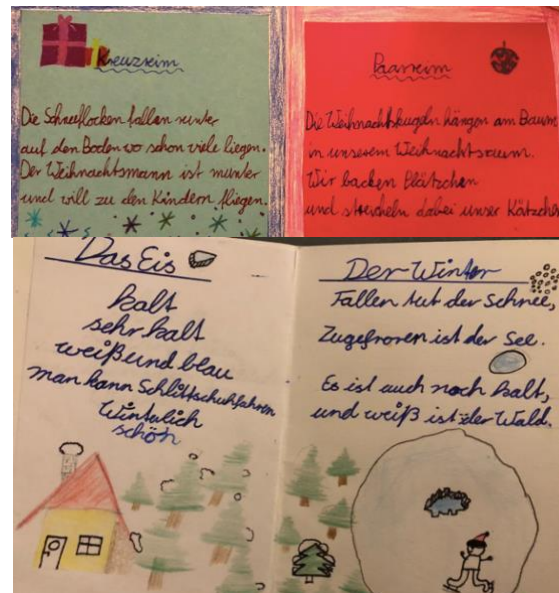 Kreuzreim
Die Schneeflocken fallen runter
auf den Boden wo schon viele liegen.
Der Weihnachtsmann ist munter
und will zu den Kindern fliegen.
Paarreim
Die Weihnachtskugeln hängen am Baum
in unserem Weihnachtsraum.
Wir backen Plätzchen
und streicheln dabei unser Kätzchen
Das Eis
kalt
sehr kalt
weiß und blau
man kann Schlittschuhfahren
Winterlich
schön
Der Winter
Fallen tut der Schnee,
Zugefroren ist der See.
Es ist auch noch kalt,
und weiß ist der Wald.